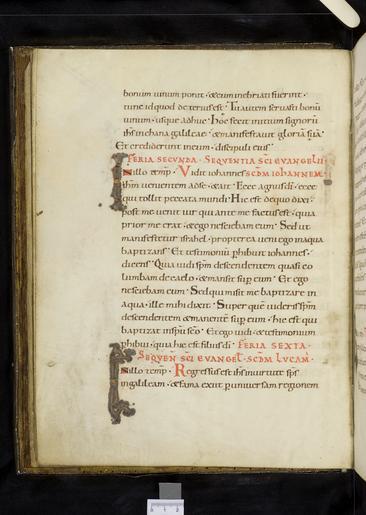 bonum uinum ponit · & cum inebriati fuerint ·
tunc id quod deterius est · Tu autem seruasti bonū
uinum · usque adhuc · Hoc fecit initium signorū
ih̄s in chana galileae · & manifestauit gloriā suā ·
Et crediderunt in eum · discipuli eius ·
FERIA SECUNDA · SEQUENTIA SC̄I EVANGELII
In illo temp̄ · Vidit iohannes SCDM IOHANNEM
ih̄m uenientem ad se · & ait · Ecce agnus dī · ecce
qui tollit peccata mundi · Hic est de quo dixi ·
post me uenit uir qui ante me factus est · quia
prior me erat · & ego nesciebam eum · Sed ut
manifestetur israhel · propterea ueni ego in aqua
baptizans · Et testimoniū phibuit iohannes ·
dicens · Quia uidi spm̄ descendentem quasi co
lumbam de caelo · & mansit sup eum · Et ego
nesciebam eum · Sed qui misit me baptizare in
aqua · ille mihi dixit · Super quē uideris spm̄
descendentem & manentē sup eum · hic est qui
baptizat in spū sc̄o · Et ego uidi · & testimonium
phibui · quia hic est filius dī · FERIA SEXTA ·
SEQUEN̄ SC̄I EVANGEL̄ · SCDM LVCAM ·
In illo temp̄ · Regressus est ih̄s in uirtute sp̄s
in galileam · & fama exiit p uniuersam regionem